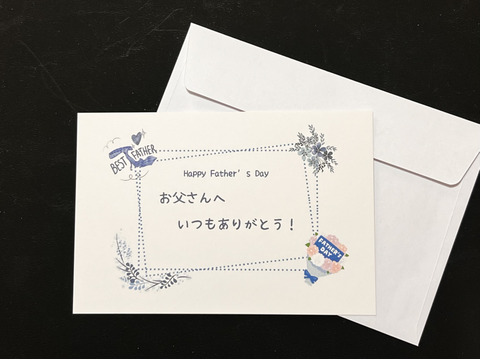 BEST FATHER
Happy Father's Day
お父さんへ
いつもありがとう！
FATHER'S
DAY